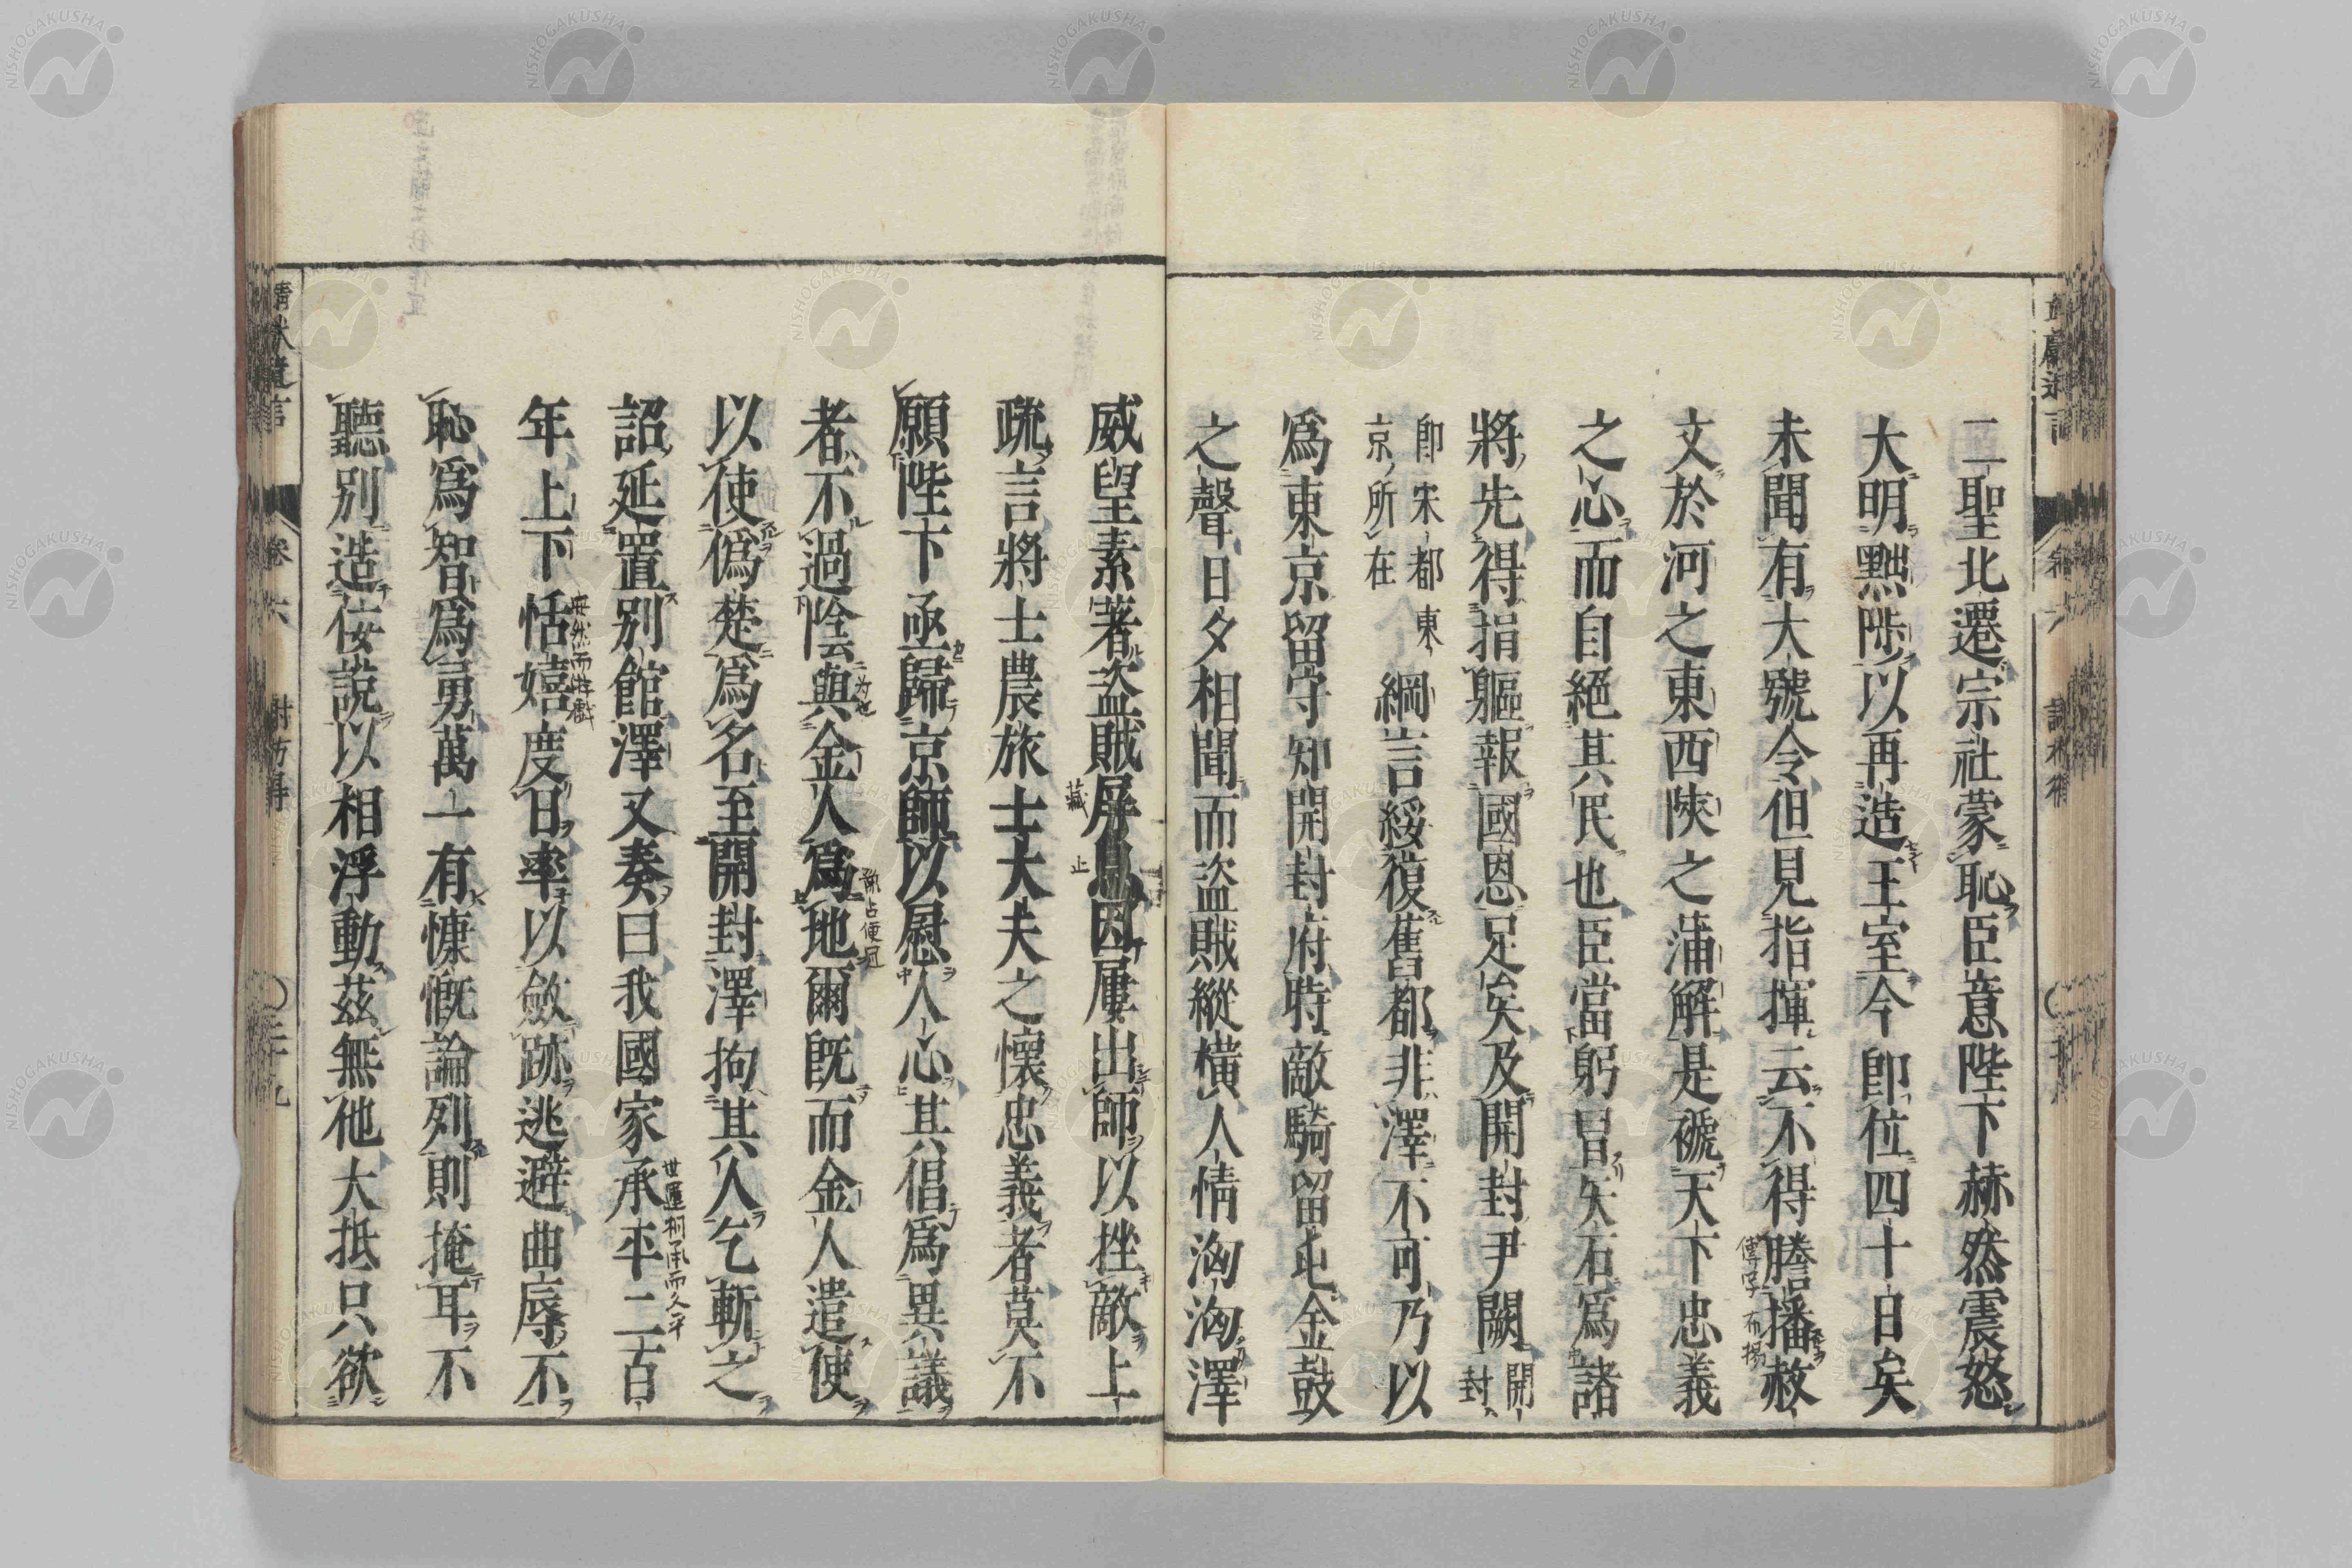 二聖北遷宗社蒙恥臣意陛下赫然震怒
大明黜陟以再造王室今卽位四十日矣
未聞有大號令但見指揮云不得謄播赦
文於河之東西陝之蒲解是褫天下忠義
之心而自絕其民也臣當躬冒矢石爲諸
將先得捐軀報國恩足矣及開封尹闕開封
卽宋都東京所在綱言綏復舊都非澤不可乃以
爲東京留守知開封府時敵騎留屯金鼓
之聲日夕相聞而盜賊縱橫人情洶洶澤
威望素著盜賊屏息因屢出師以挫敵上
疏言將士農旅士大夫之懷忠義者莫不
願陛下亟歸京師以慰人心其倡爲異議
者不過陰與金人爲地爾旣而金人遣使
以使僞楚爲名至開封澤拘其人乞斬之
詔延置別館澤又奏曰我國家承平二百
年上下恬嬉度日率以斂跡逃避曲辱不
恥爲智爲勇萬一有慷慨論列則掩耳不
聽別造佞說以相浮動茲無他大抵只欲
藏
止
傳寫
布揚
靖献遺言
卷六
謝枋得
二十九
NISHOGAKUSHA